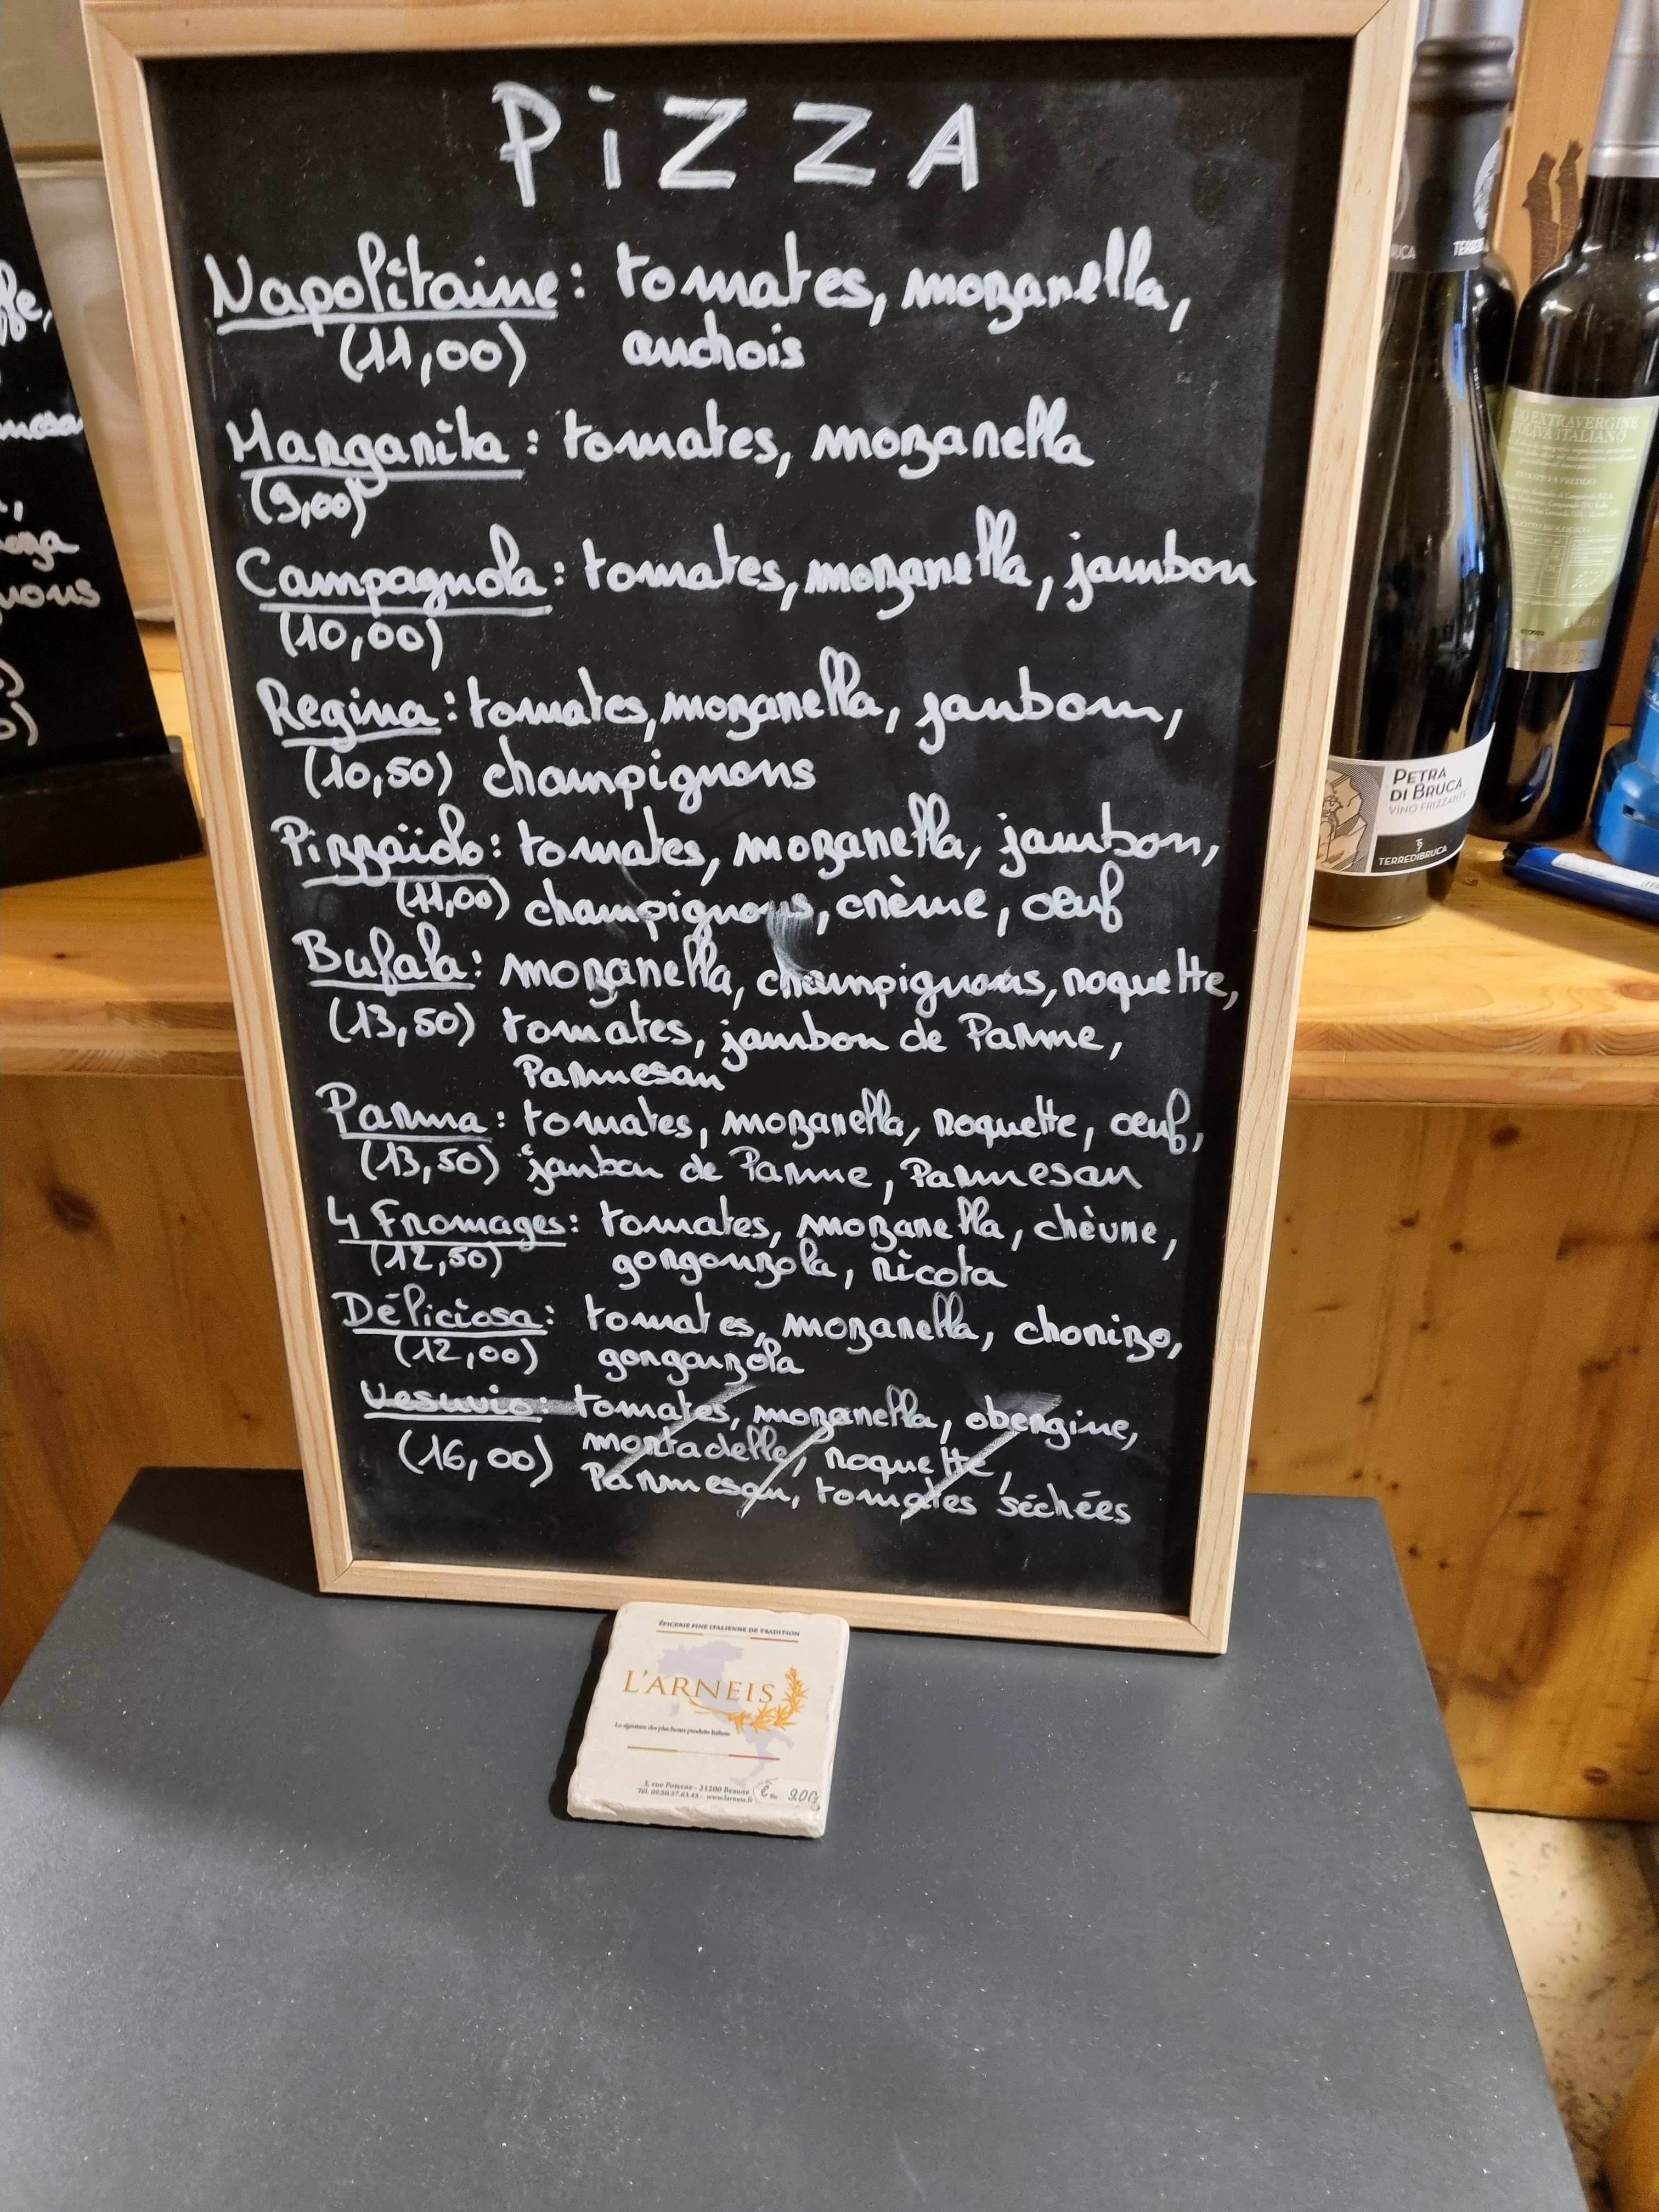 PiZZA
Napolitaine : tomates, mozzarella,
(11,00) anchois
Margarita : tomates, mozzarella
(9,00)
Campagnola : tomates, mozzarella, jambon
(10,00)
Regina : tomates, mozzarella, jambon,
(10,50) champignons
Pizzaïolo : tomates, mozzarella, jambon,
(11,00) champignons, crème, œuf
Bufala : mozzarella, champignons, roquette,
(13,50) tomates, jambon de Parme,
Parmesan
Parma : tomates, mozzarella, roquette, œuf,
(13,50) jambon de Parme, Parmesan
4 Fromages : tomates, mozzarella, chèvre,
(12,50) gorgonzola, ricota
Déliciosa : tomates, mozzarella, chorizo,
(12,00) gorgonzola
Vesuvio : tomates, mozzarella, obergine,
(16,00) mortadelle, roquette,
Parmesan, tomates séchées
ÉPICERIE FINE ITALIENNE DE TRADITION
L'ARNEIS
La signature des plus beaux produits Italiens
3, rue Poterne - 21200 Beaune
Tél. 09.80.37.63.45 - www.larneis.fr
€ 9.00
PETRA
DI BRUCA
VINO FRIZZANTE
TERREDIBRUCA
EXTRAVERGINE
D'OLIVA ITALIANO
ESTRATTO A FREDDO